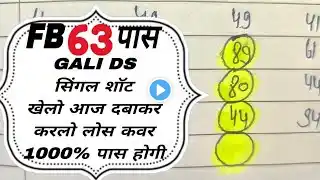 FB 63 पास
GALI DS
सिंगल शॉट
खेलो आज दबाकर
करलो लोस कवर
1000% पास होगी
49
89
80
44
61